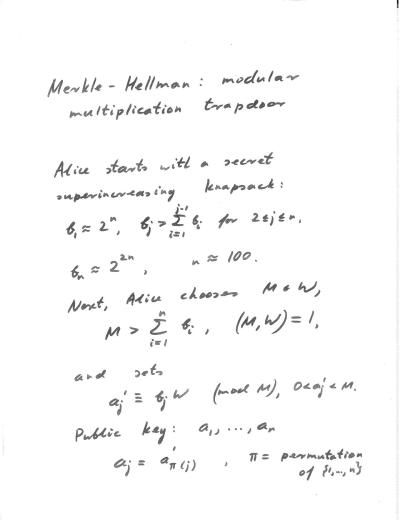 Merkle - Hellman : modular
multiplication trapdoor
Alice starts with a secret
superincreasing knapsack :
b₁ ≈ 2ⁿ, bⱼ > Σᵢ₌₁ʲ⁻¹ bᵢ for 2 ≤ j ≤ n,
bₙ ≈ 2²ⁿ , n ≈ 100.
Next, Alice chooses M & W,
M > Σᵢ₌₁ⁿ bᵢ , (M, W) = 1,
and sets
aⱼ' ≡ bⱼ W (mod M), 0 < aⱼ' < M.
Public key : a₁, ..., aₙ
aⱼ = a'π(j) , π = permutation
of {1,..,n}